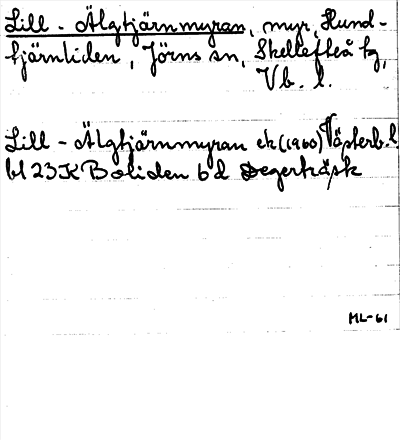 Lill - Älgtjärnmyran, myr, Hund-
tjärnliden, Jörns sn, Skellefteå tg,
Vb. l.
Lill - Älgtjärnmyran ek (1960) Västerb. l
bl 23K Boliden 6 d Degerträsk
ML-61